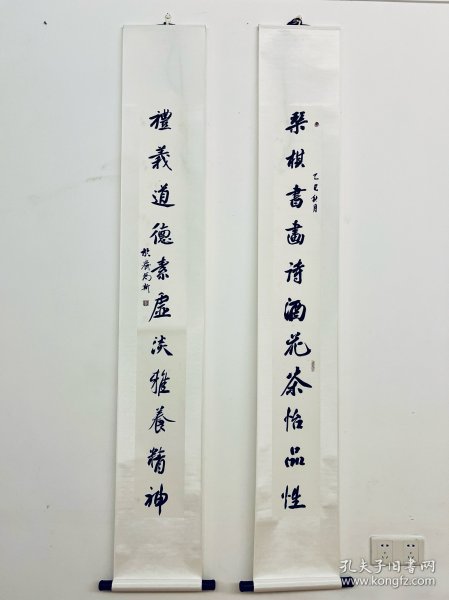 琴棋書畫诗酒花茶怡品性
乙巳秋月
禮義道德素虚淡雅養精神
孔夫子旧书网
www.kongfz.com